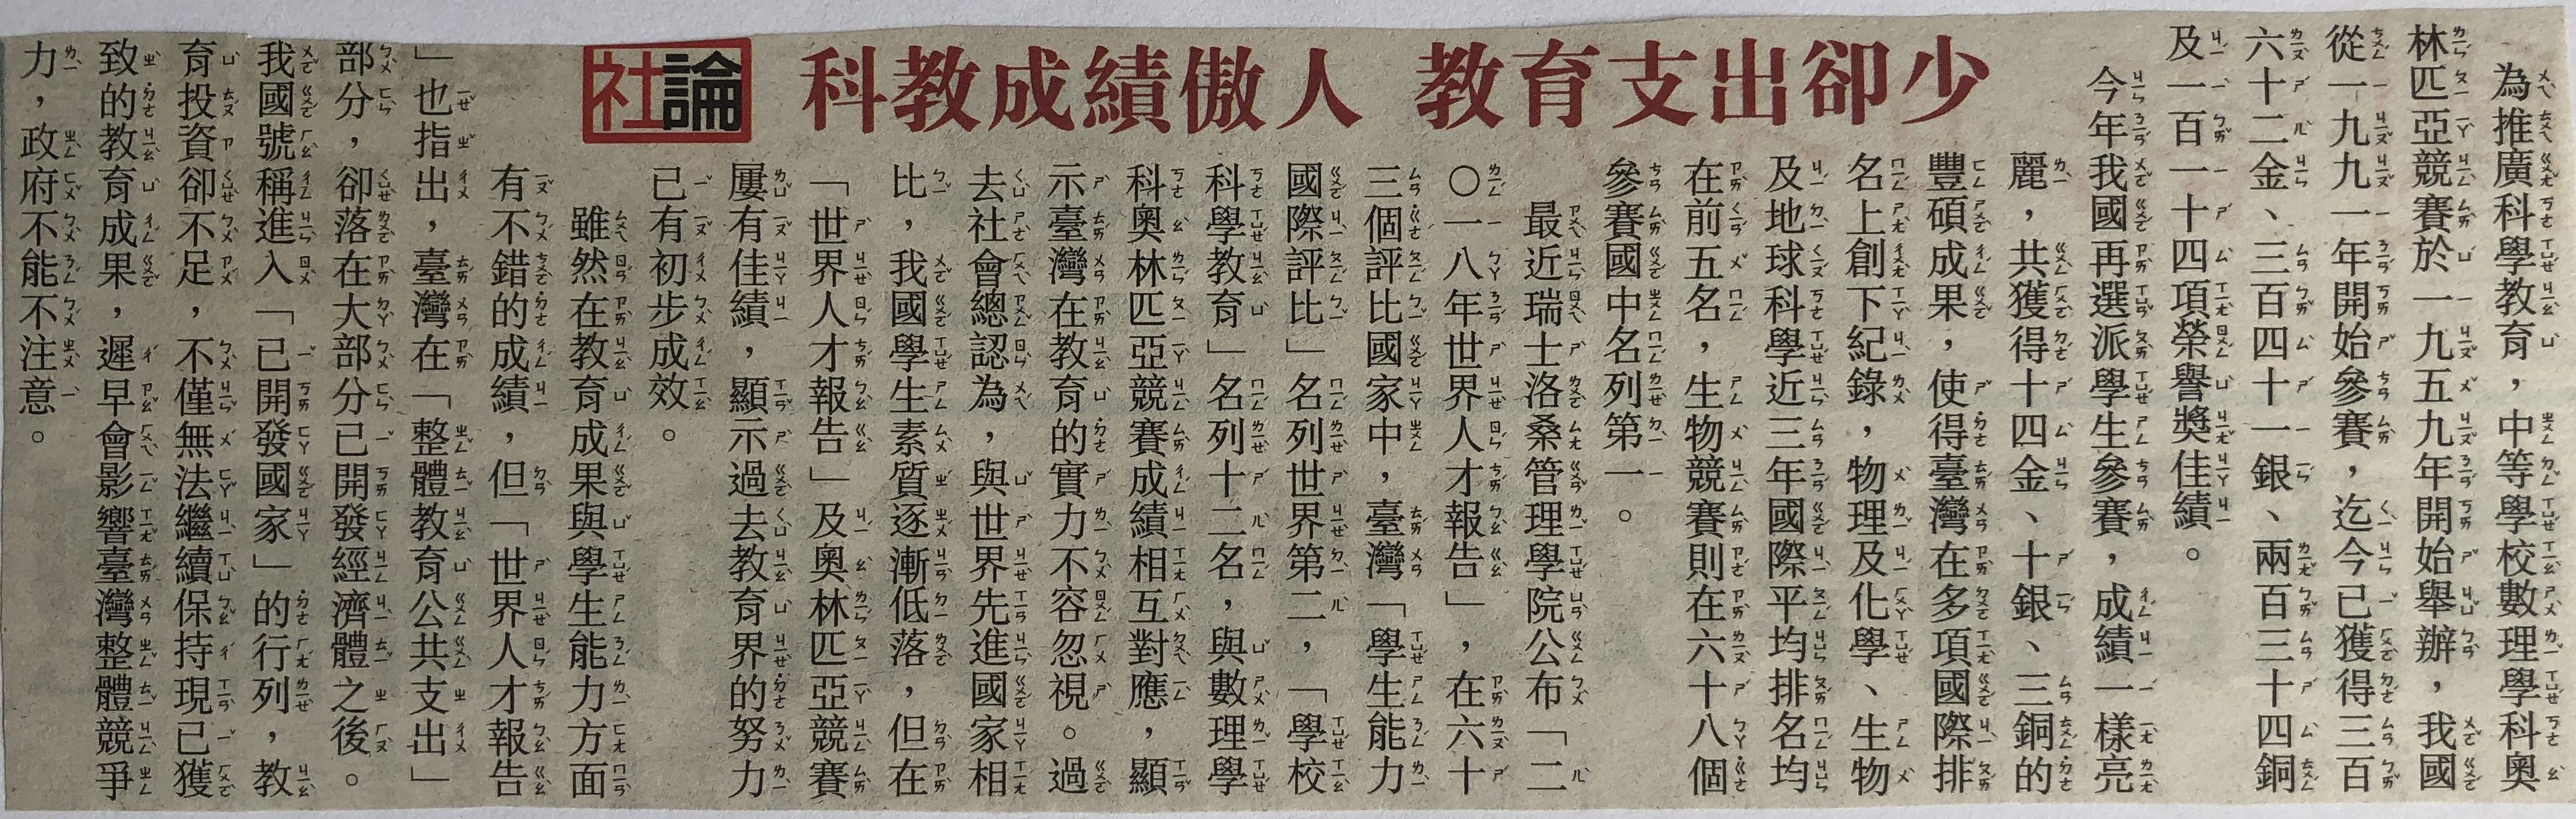 科教成績傲人 教育支出卻少
社論
為推廣科學教育，中等學校數理學科奧
林匹亞競賽於一九五九年開始舉辦，我國
從一九九一年開始參賽，迄今已獲得三百
六十二金、三百四十一銀、兩百三十四銅
及一百一十四項榮譽獎佳績。
今年我國再選派學生參賽，成績一樣亮
麗，共獲得十四金、十銀、三銅的
豐碩成果，使得臺灣在多項國際排
名上創下紀錄，物理及化學、生物
及地球科學近三年國際平均排名均
在前五名，生物競賽則在六十八個
參賽國中名列第一。
最近瑞士洛桑管理學院公布「二
〇一八年世界人才報告」，在六十
三個評比國家中，臺灣「學生能力
國際評比」名列世界第二，「學校
科學教育」名列十二名，與數理學
科奧林匹亞競賽成績相互對應，顯
示臺灣在教育的實力不容忽視。過
去社會總認為，與世界先進國家相
比，我國學生素質逐漸低落，但在
「世界人才報告」及奧林匹亞競賽
屢有佳績，顯示過去教育界的努力
已有初步成效。
雖然在教育成果與學生能力方面
有不錯的成績，但「世界人才報告
」也指出，臺灣在「整體教育公共支出」
部分，卻落在大部分已開發經濟體之後。
我國號稱進入「已開發國家」的行列，教
育投資卻不足，不僅無法繼續保持現已獲
致的教育成果，遲早會影響臺灣整體競爭
力，政府不能不注意。